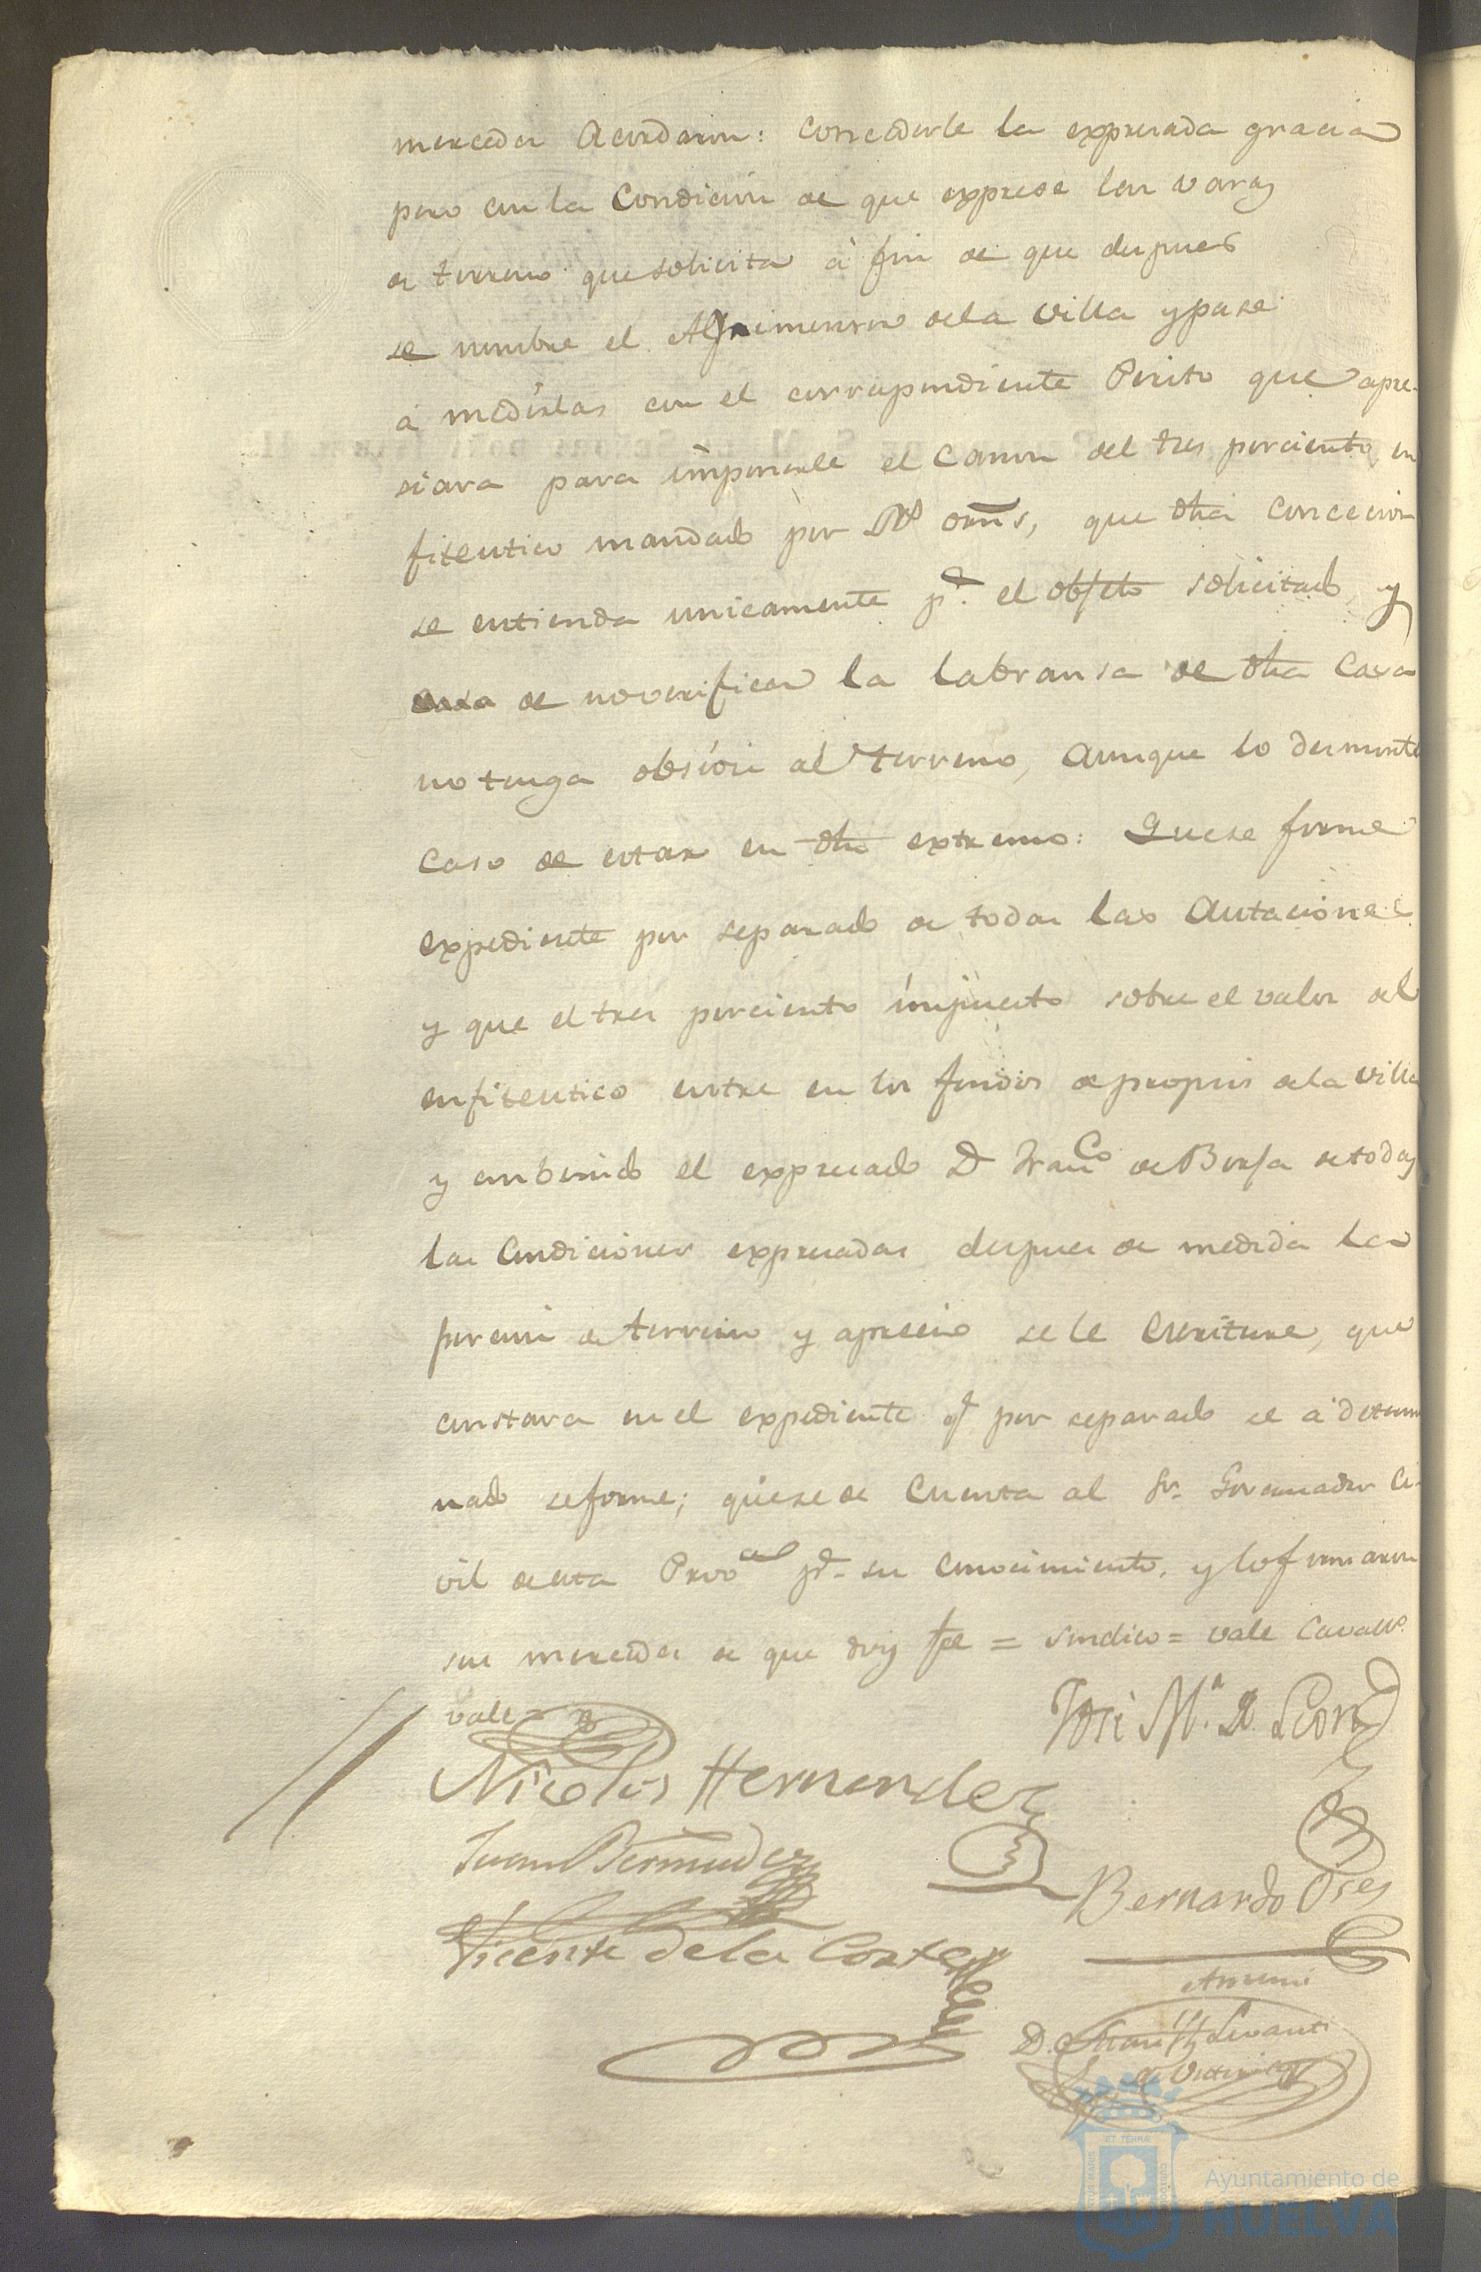 mercedes Acordaron: concederle la expresada gracia
pero con la Condicion de que exprese las varas
de terreno que solicita á fin de que despues
se nombre el Agrimensor dela villa y pase
á medirlas con el correspondiente Perito que apre-
siara para imponerle el Canon del tres porciento en
fiteutico mandado por Rs ordns, que dha concecion
se entienda unicamente pa. el objeto solicitado, y
caso de no verificar la labransa de dha Casa
no tenga obsion al terreno, aunque lo desmonte
caso de estar en dho extremo: Que se forme
expediente por separado de todas las Autaciones
y que el tres porciento impuesto sobre el valor del
enfiteutico entre en los fondos de propios dela villa
y conbenido el expresado D Franco de Borja de todas
las Condiciones expresadas despues de medida la
porcion de terreno y apresio se le escriture, que
constara en el expediente q. por separado se á determi
nado se forme; que se de Cuenta al Sr. Governador Ci-
vil de esta Provcia pa. su conocimiento, y lo firmaron
sus mercedes de que doy fee = sindico = vale Cavallo.
vale =
José Ma. D. Leon
Nicolás Hernandez
Juan Bermudez
Bernardo Oses
Vicente de la Corte
Antemi
D. Levanti
Ayuntamiento de
HUELVA